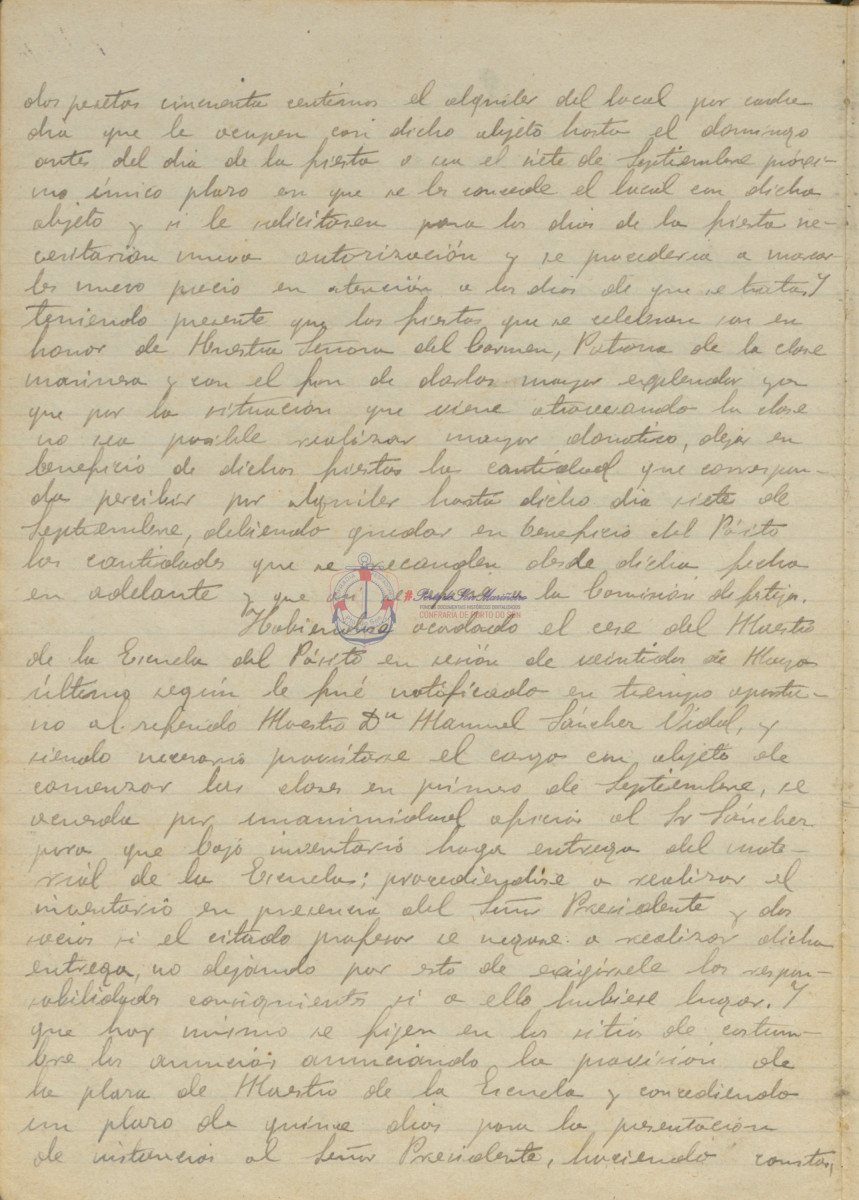 dos pesetas cincuenta centimos el alquiler del local por cada
dia que le ocupen con dicho objeto hasta el domingo
antes del dia de la fiesta o sea el siete de Septiembre próxi-
mo único plazo en que se les concede el local con dicho
objeto y si le solicitasen para los dias de la fiesta ne-
cesitarian nueva autorización y se procederia a marcar
les nuevo precio en atención a los dias de que se trata. Y
teniendo presente que las fiestas que se celebran son en
honor de Nuestra Señora del Carmen, Patrona de la clase
marinera y con el fin de darlas mayor explendor ya
que por la situación que viene atravesando la clase
no sea posible realizar mayor donativo, dejar en
beneficio de dichas fiestas la cantidad que correspon-
da percibir por alquiler hasta dicho dia siete de
Septiembre, debiendo quedar en beneficio del Pósito
las cantidades que se recauden desde dicha fecha
en adelante y que asi se a la Comisión de festejos.
CONFRARÍA DE PORTO DO SON
Habiendose acordado el cese del Maestro
de la Escuela del Pósito en sesión de veintidos de Mayo
último según le fué notificado en tiempo oportu-
no al referido Maestro Dn Manuel Sánchez Vidal, y
siendo necesario proveitarse el cargo con objeto de
comenzar las clases en primero de Septiembre, se
acuerda por unanimidad oficiar al Sr Sánchez
para que bajo inventario haga entrega del mate-
rial de la Escuela; procediendose a realizar el
inventario en presencia del Señor Presidente y dos
socios si el citado profesor se negase a realizar dicha
entrega, no dejando por esto de exigírsele las respon-
sabilidades consiguientes si a ello hubiese lugar. Y
que hoy mismo se fijen en los sitios de costum-
bre los anuncios anunciando la provisión de
la plaza de Maestro de la Escuela y concediendo
un plazo de quince dias para la presentación
de instancias al Señor Presidente, haciendo constar,